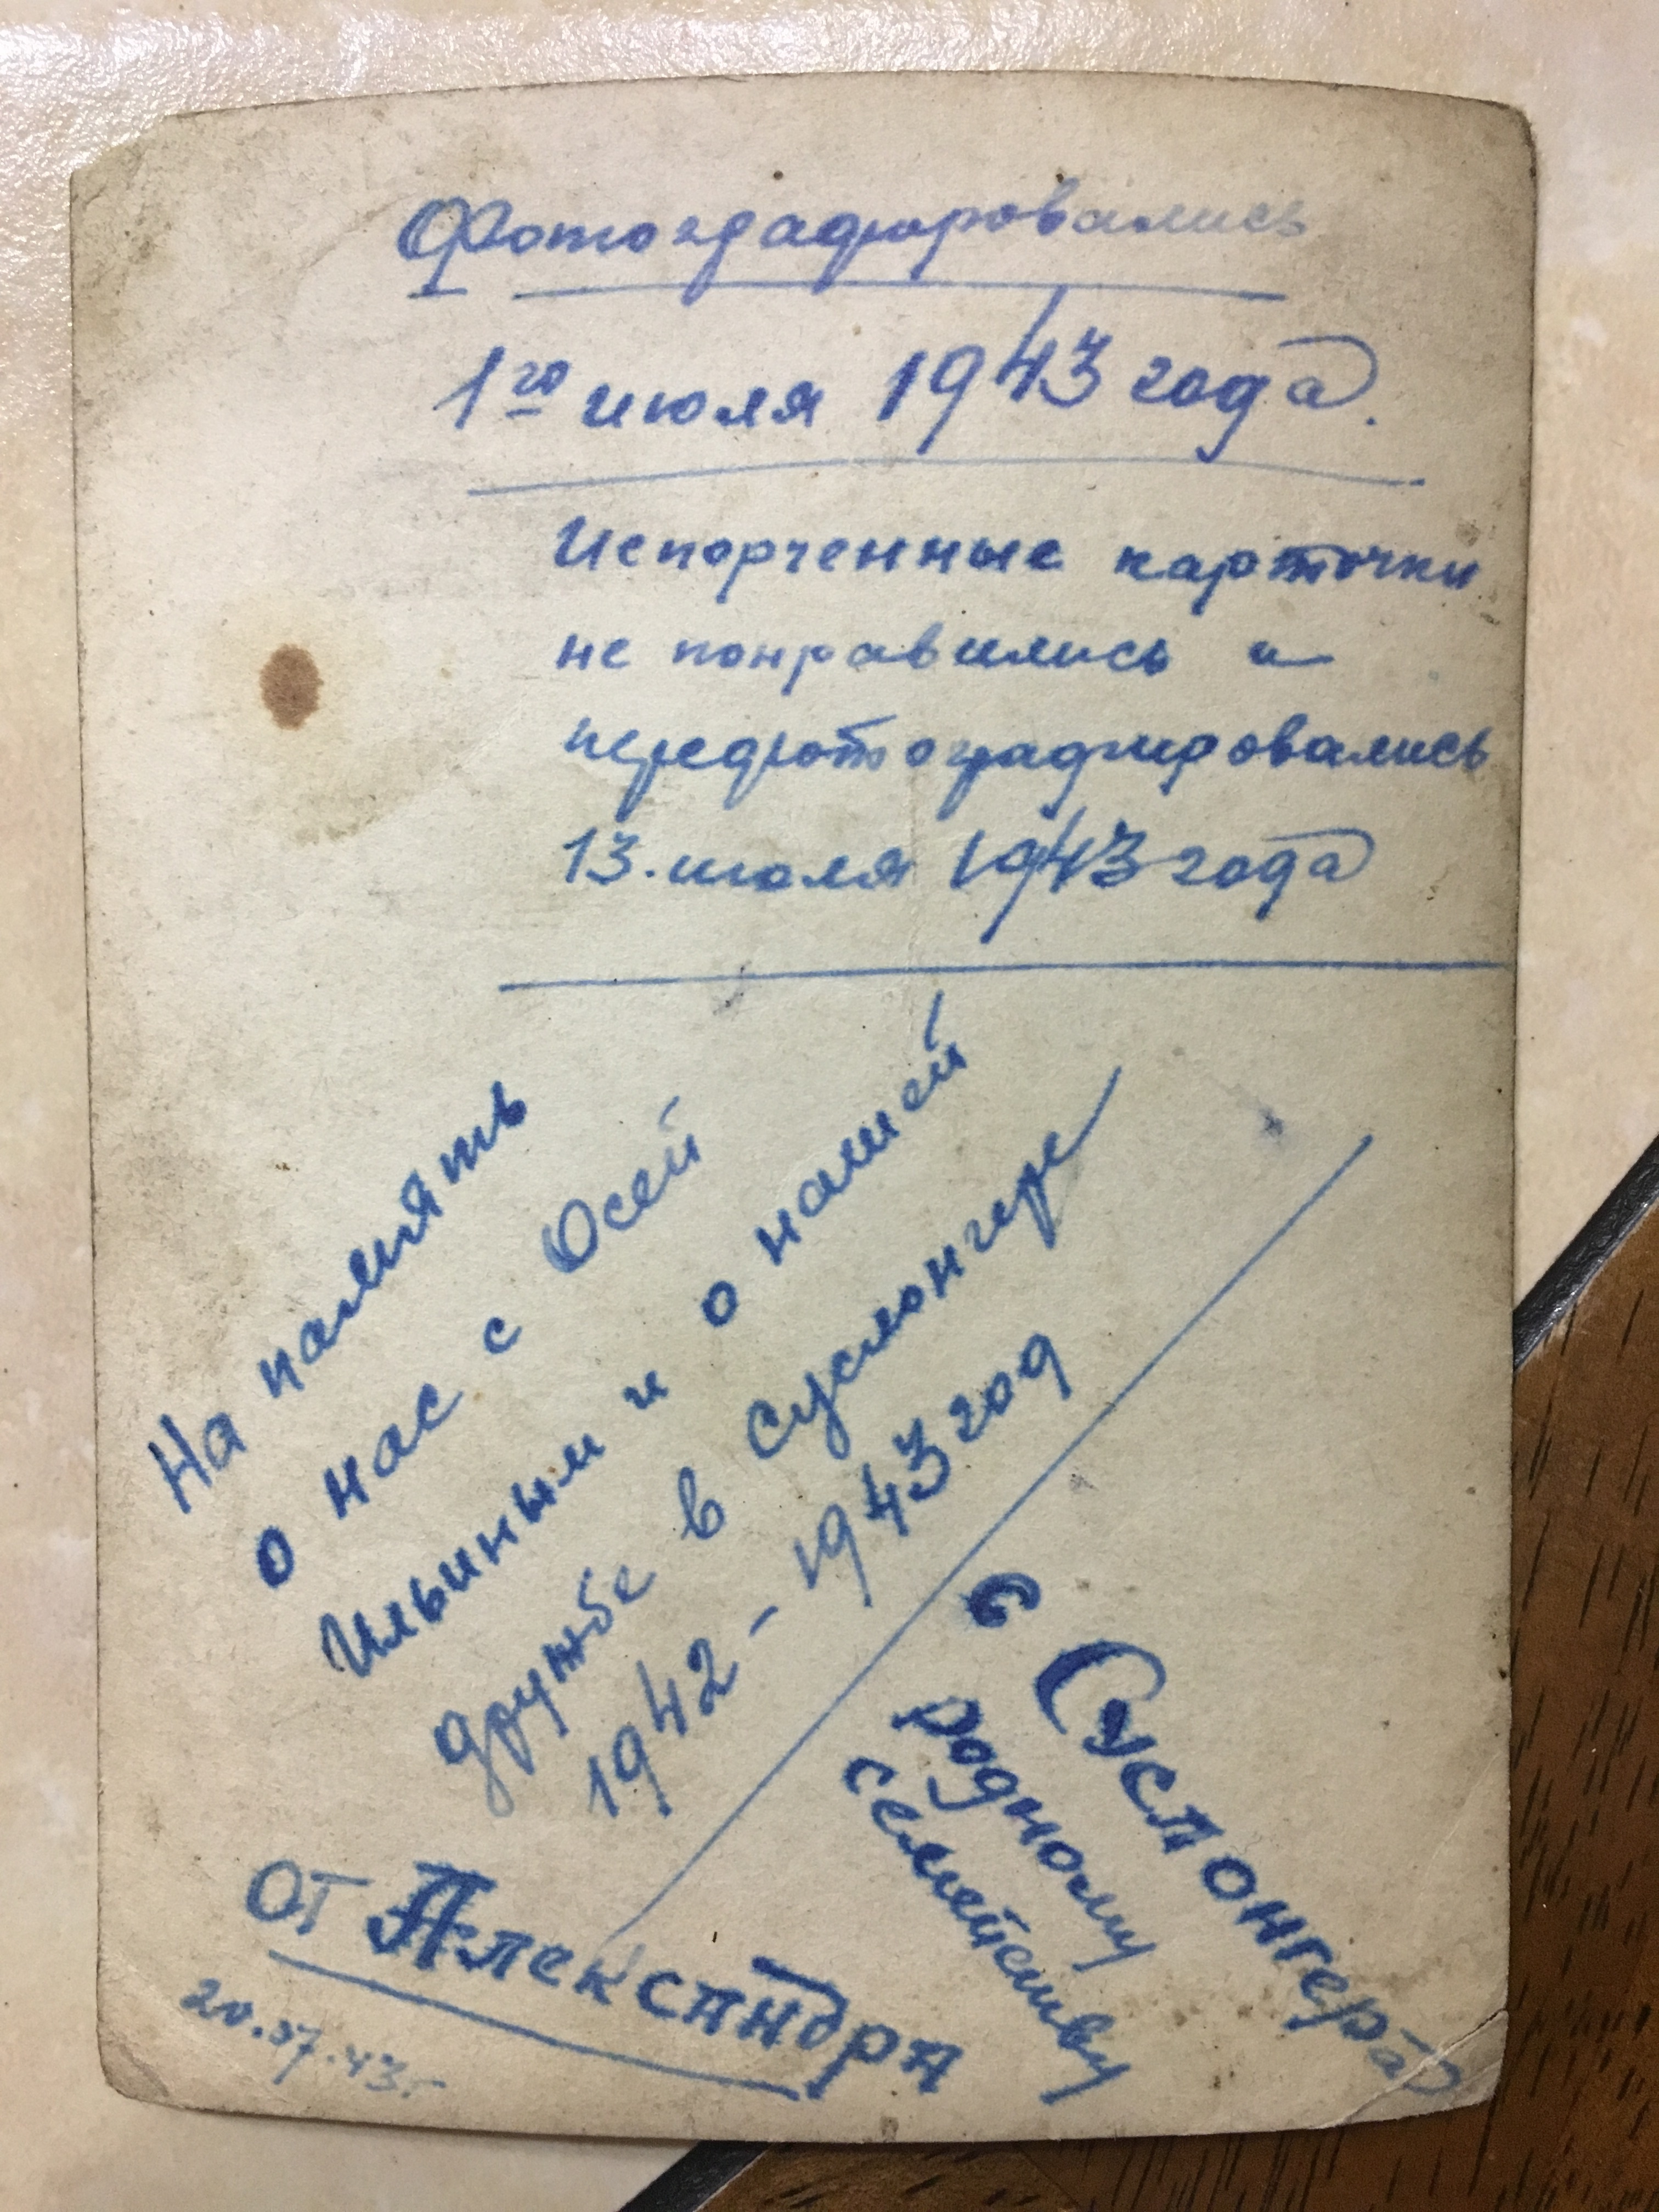 Фотографировались
1го июля 1943 года.
Испорченные карточки
не понравились и
перефотографировались
13. июля 1943 года
На память
о нас с Осей
Ильиным и о нашей
дружбе в Суслонгере
1942 - 1943 год
с Суслонгера
родному
семейству
от Александра
20.07.43г